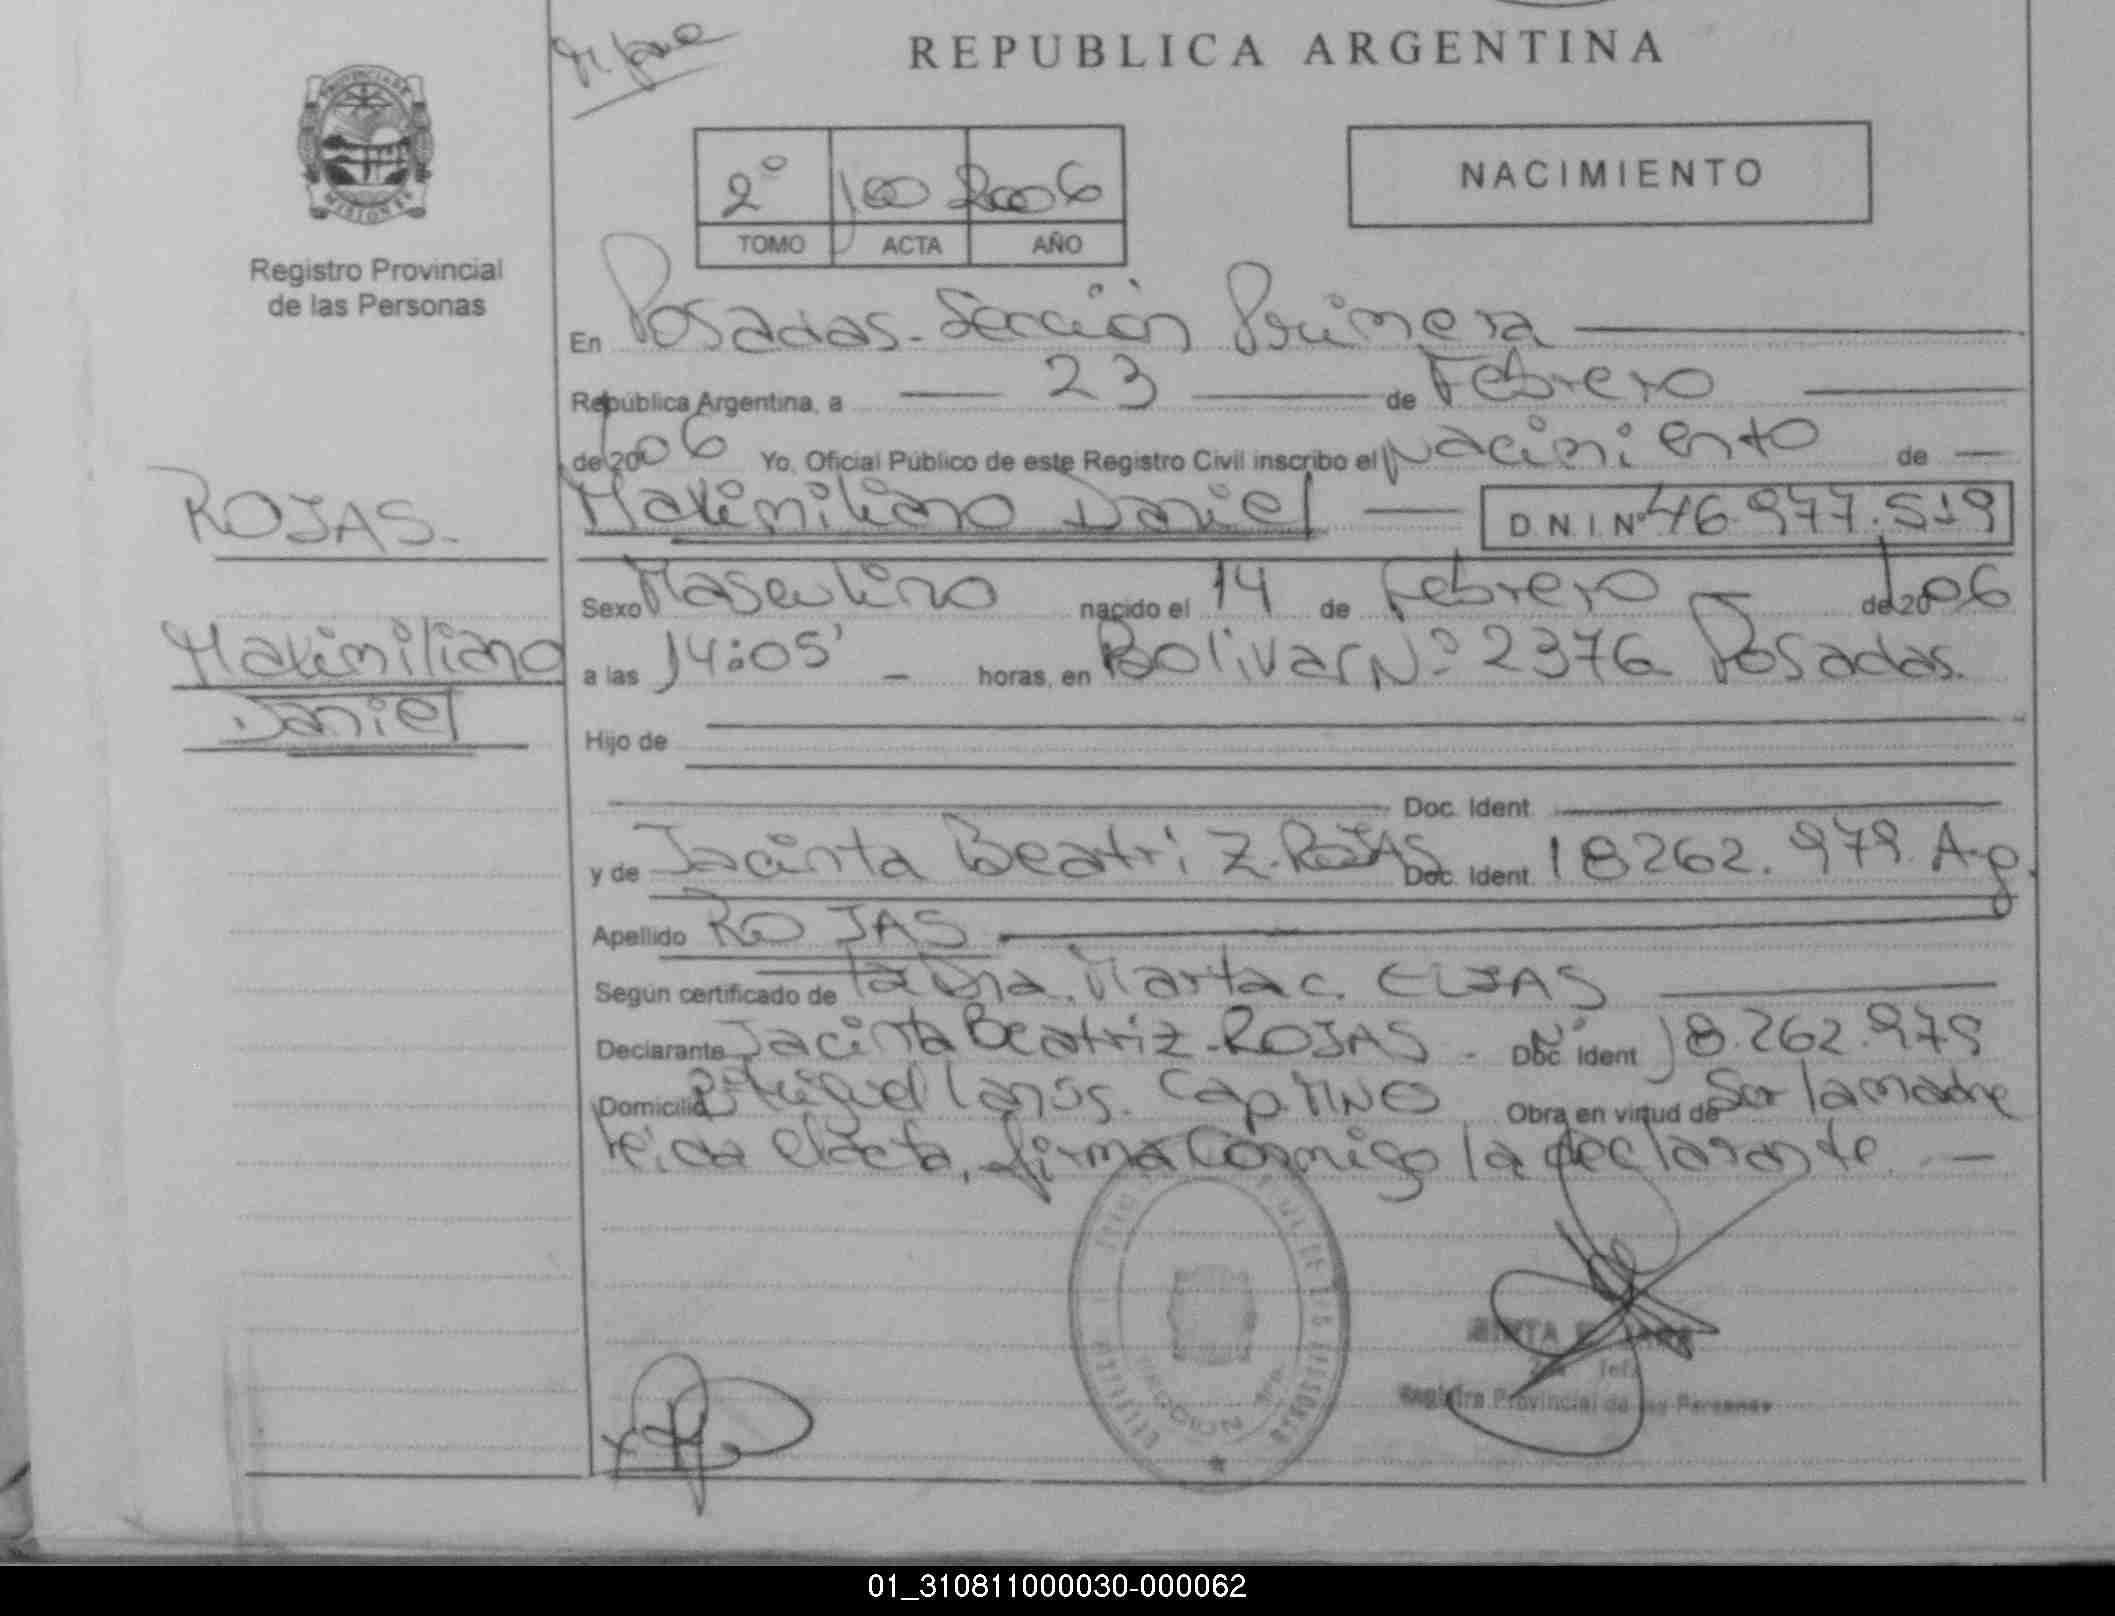 REPUBLICA ARGENTINA
PROVINCIA DE
MISIONES
Registro Provincial
de las Personas
2º 100 2006
TOMO ACTA AÑO
NACIMIENTO
En Posadas - Sección Primera
República Argentina, a 23 de Febrero
de 2006 Yo, Oficial Público de este Registro Civil inscribo el Nacimiento de
Maximiliano Daniel D.N.I. Nº 46.977.519
ROJAS
Maximiliano
Daniel
Sexo Masculino nacido el 14 de Febrero de 2006
a las 14:05' horas, en Bolivar Nº 2376 Posadas.
Hijo de
Doc. Ident.
y de Jacinta Beatriz ROJAS Doc. Ident. 18262.979. Arg.
Apellido ROJAS
Según certificado de la Dra. Marta C. ELIAS
Declarante Jacinta Beatriz ROJAS - Doc. Ident. Nº 18.262.979
Domicilio Bº Miguel Lanús. Cap. MNES Obra en virtud de Ser la madre
leída el acta, firma conmigo la declarante. -
Registro Provincial de las Personas
01_310811000030-000062